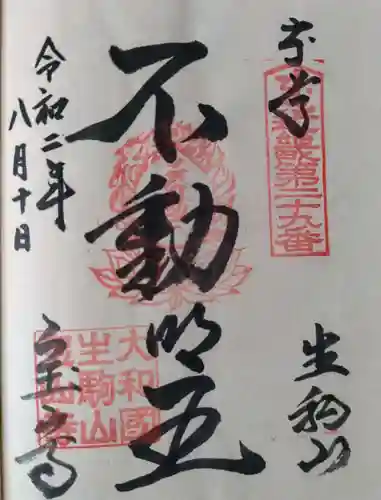 奉拝
生駒山
不動明王
令和二年
八月十日
宝山寺
第二十九番
大和國
生駒山